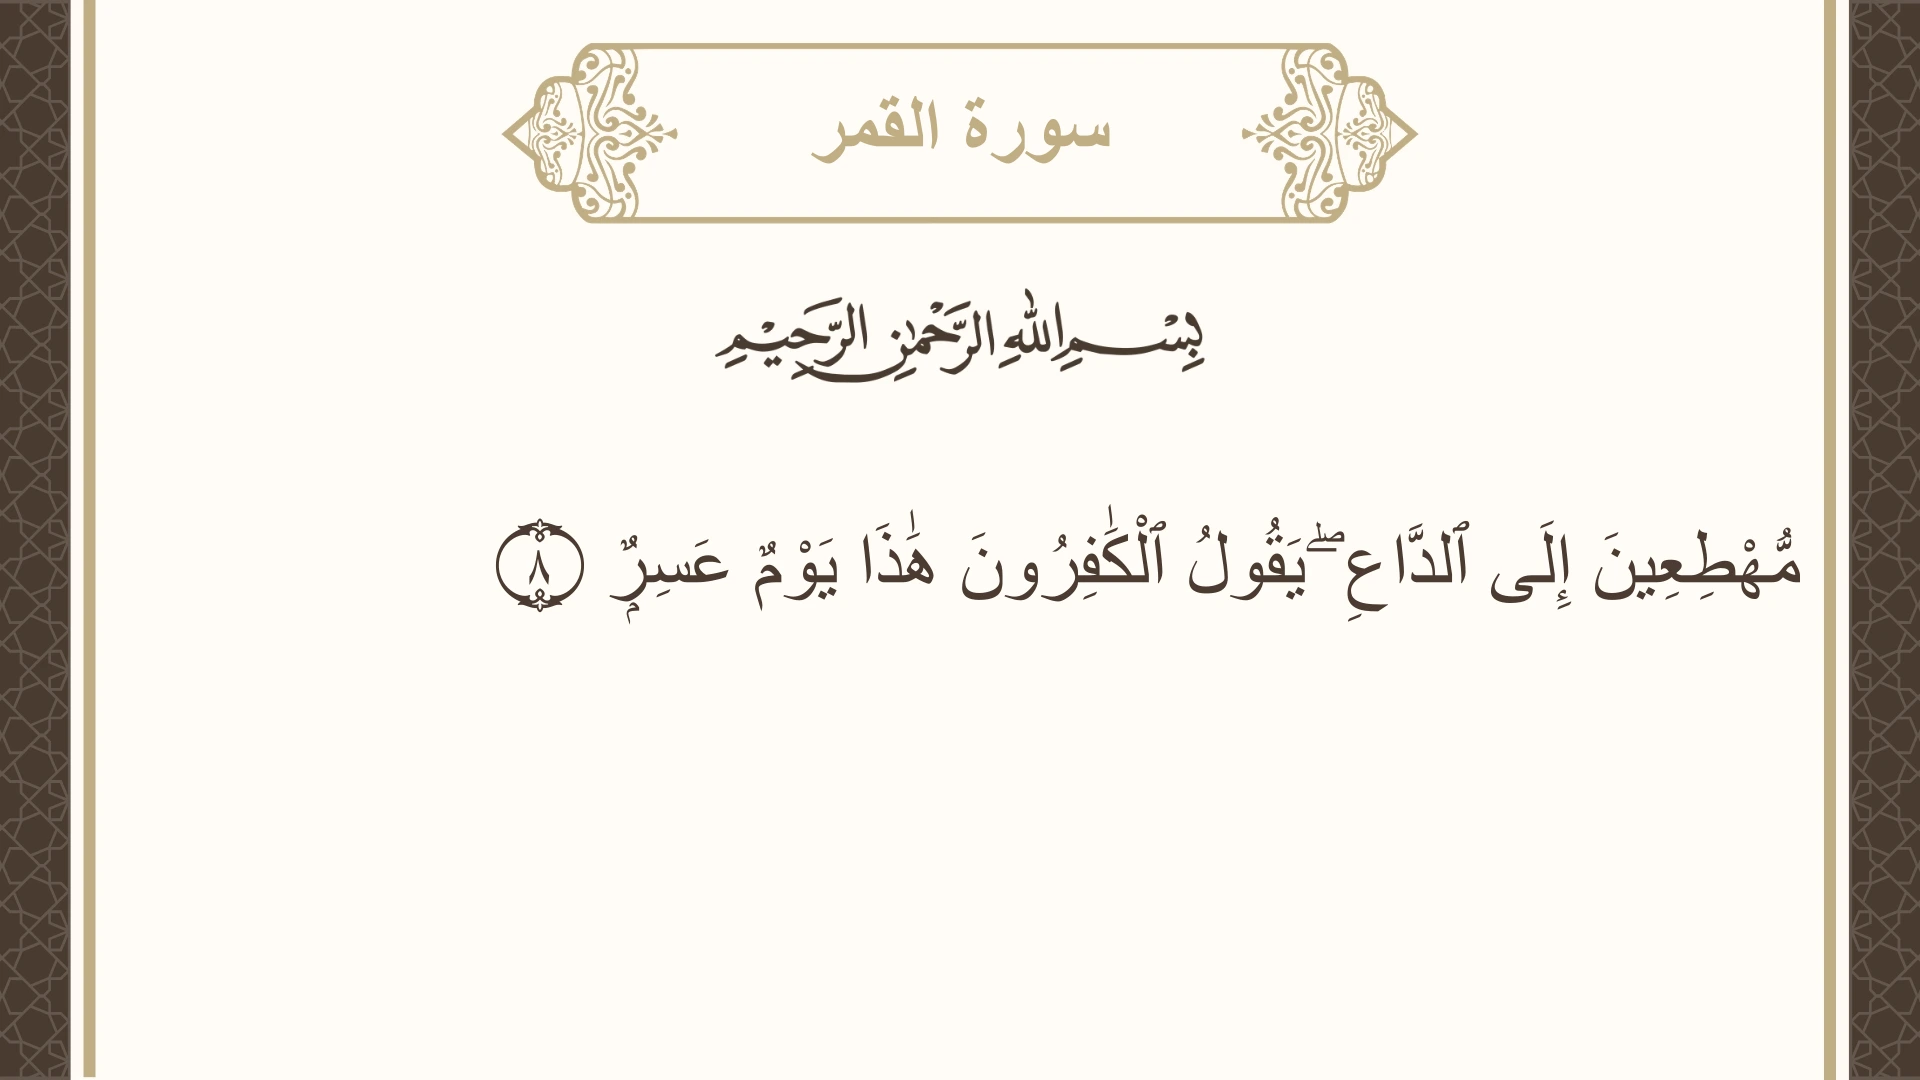 سورة القمر
بِسْمِ اللهِ الرَّحْمٰنِ الرَّحِيْمِ
مُّهْطِعِينَ إِلَى ٱلدَّاعِ ۖ يَقُولُ ٱلْكَٰفِرُونَ هَٰذَا يَوْمٌ عَسِرٌۭ ٨